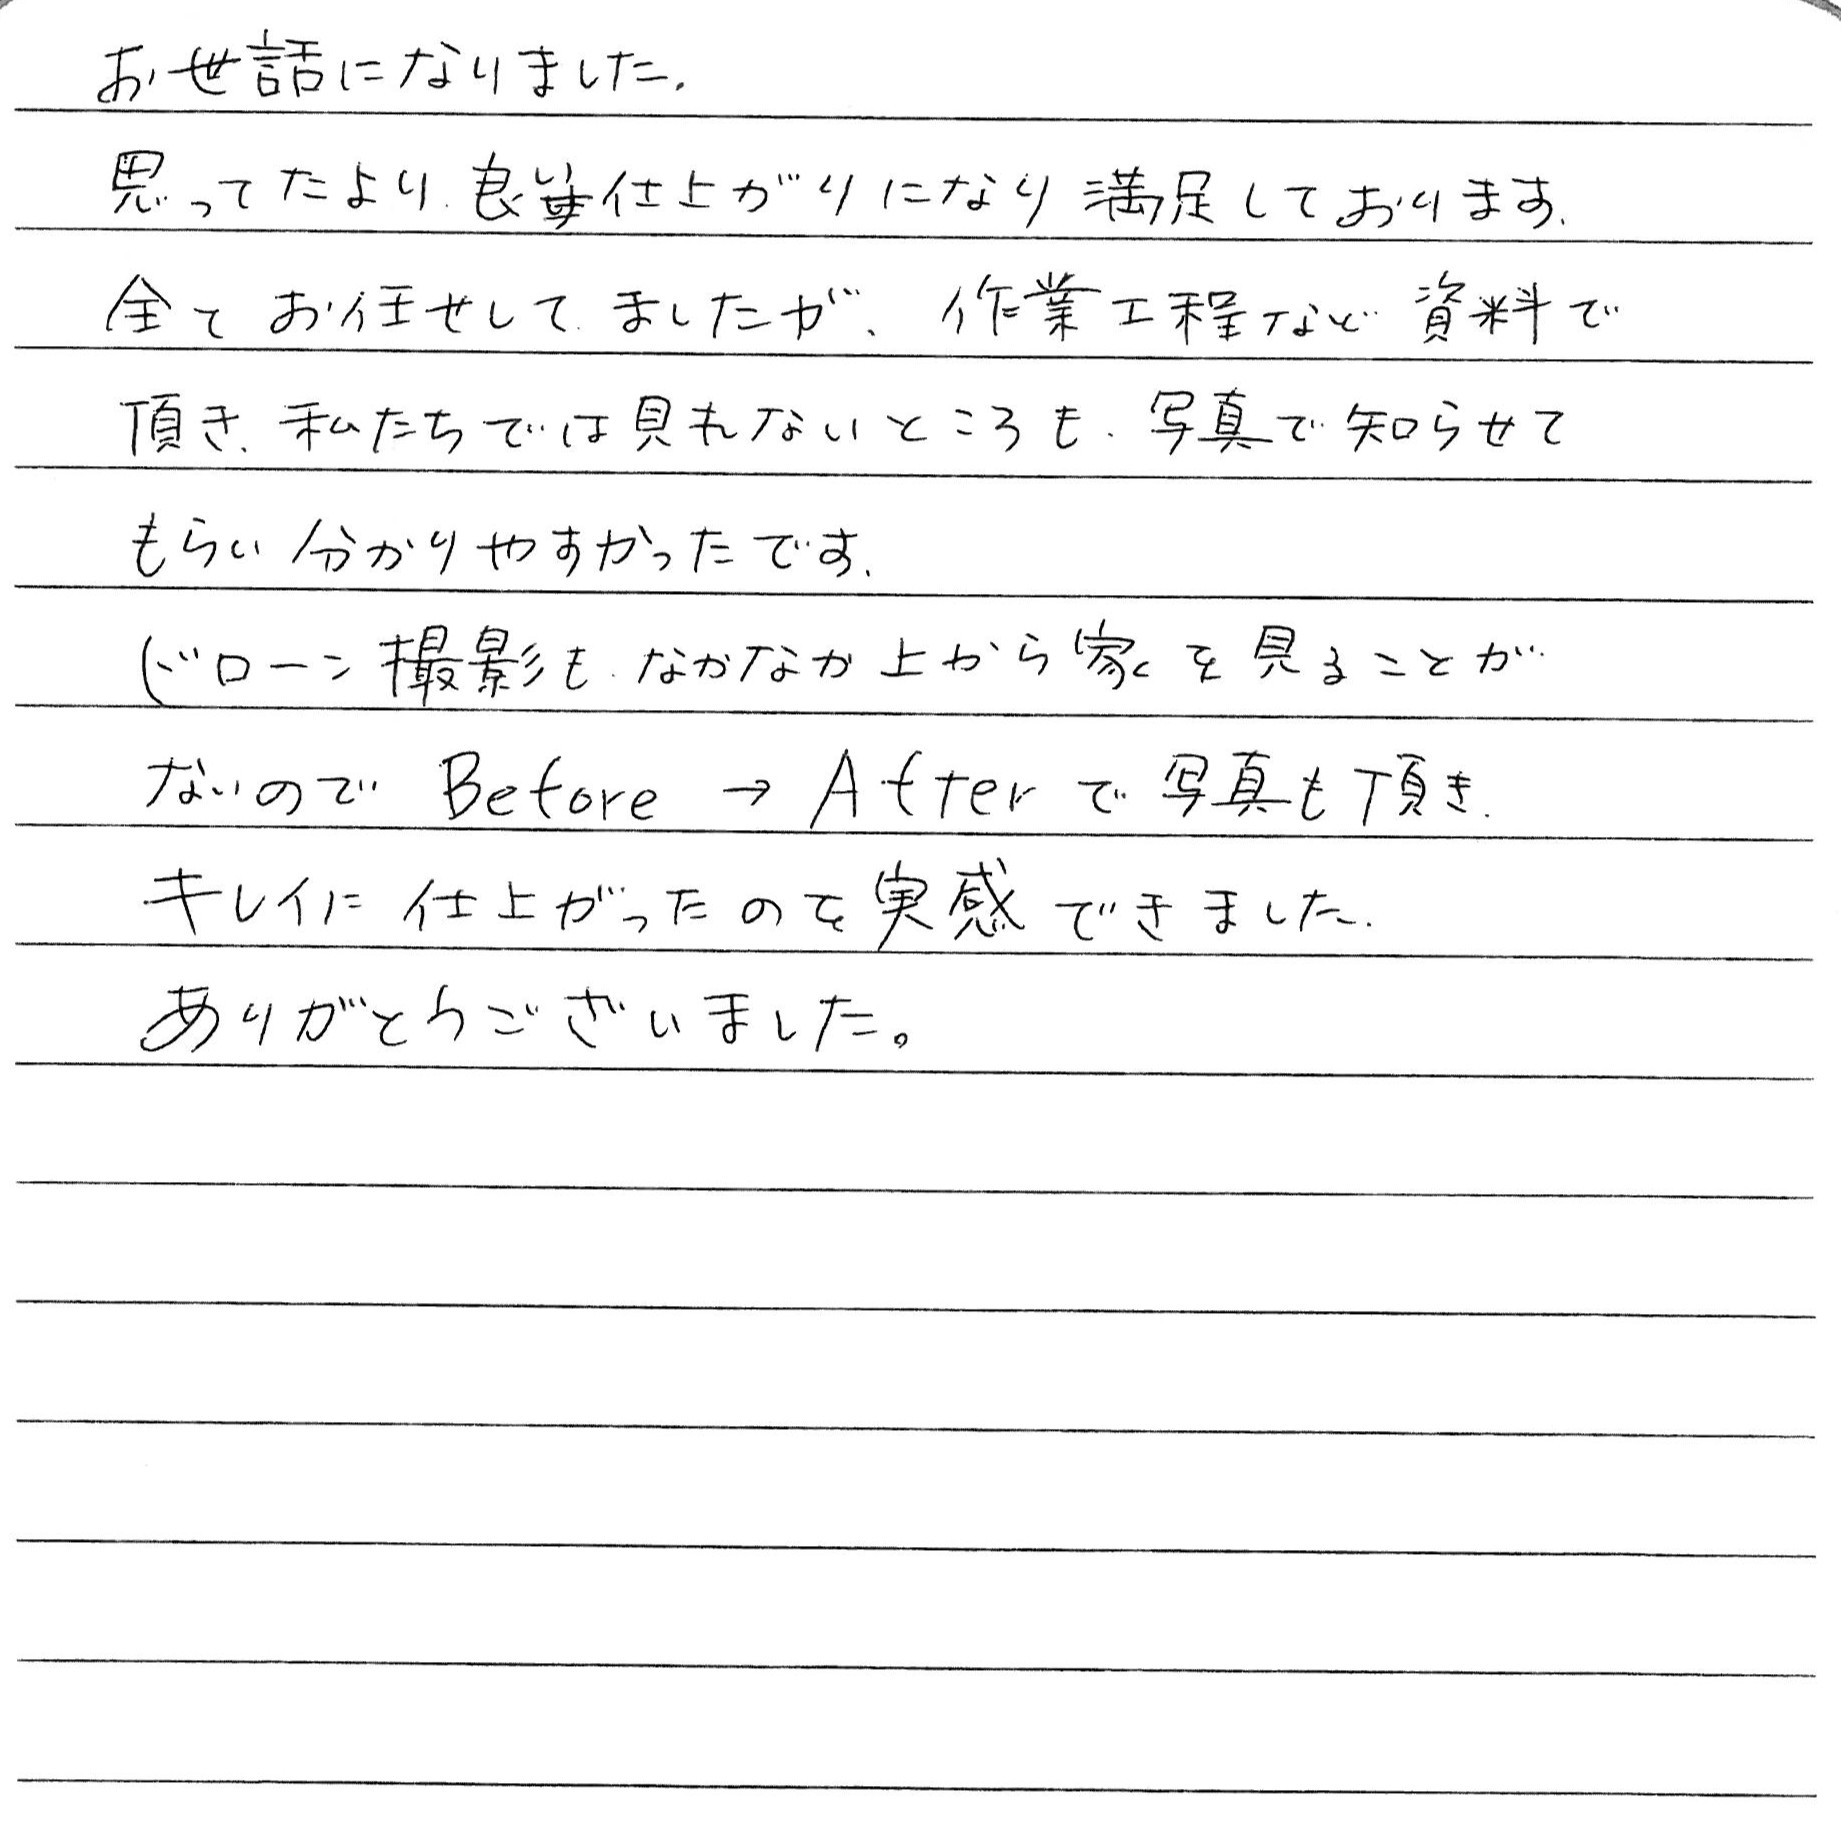 お世話になりました.
思ってたより.良い仕上がりになり満足しております.
全てお任せして.ましたが、作業工程など資料で
頂き、私たちでは見れないところも、写真で知らせて
もらい分かりやすかったです.
ドローン撮影も.なかなか上から家を見ることが
ないので Before → After で写真も頂き.
キレイに仕上がったのを実感できました.
ありがとうございました。